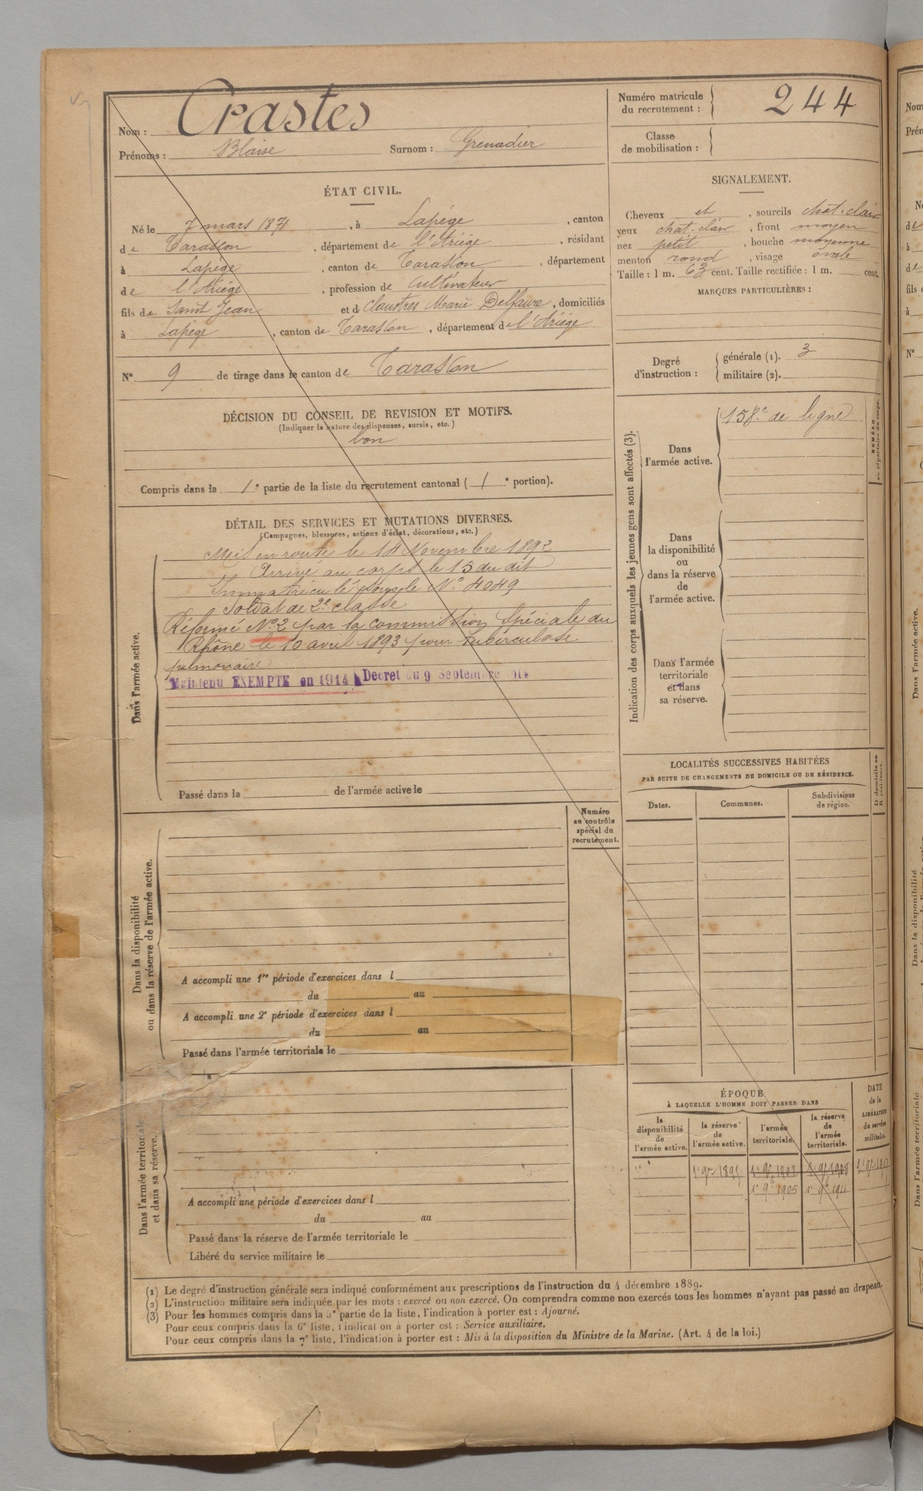 Nom : Crastes
Prénoms : Blaise Surnom : Grenadier
Numéro matricule du recrutement : 244
Classe de mobilisation :
ÉTAT CIVIL.
Né le 7 mars 1871, à Lapège, canton
de Tarascon, département de l'Ariège, résidant
à Lapège, canton de Tarascon, département
de l'Ariège, profession de Cultivateur
fils de Saint Jean et d Claustres Marie Delfaure, domiciliés
à Lapège, canton de Tarascon, département de l'Ariège
N° 9 de tirage dans le canton de Tarascon
SIGNALEMENT.
Cheveux et, sourcils chat. clair
yeux chat. clair, front moyen
nez petit, bouche moyenne
menton rond, visage ovale
Taille : 1 m. 63 cent. Taille rectifiée : 1 m. cent.
MARQUES PARTICULIÈRES :
Degré d'instruction : générale (1). 3
militaire (2).
DÉCISION DU CONSEIL DE REVISION ET MOTIFS.
(Indiquer la nature des dispenses, sursis, etc.)
bon
Compris dans la 1e partie de la liste du recrutement cantonal ( 1e portion).
DÉTAIL DES SERVICES ET MUTATIONS DIVERSES.
(Campagnes, blessures, actions d'éclat, décorations, etc.)
Dans l'armée active.
Mis en route le 14 Novembre 1892
Arrivé au corps le 15 du dit
Immatriculé sous le N° 4049
Soldat de 2e classe
Réformé N° 2 par la commission spéciale du
Rhône le 10 avril 1893 pour tuberculose
pulmonaire
Maintenu EXEMPTÉ en 1914 Décret du 9 Septembre 1914
Passé dans la de l'armée active le
Indication des corps auxquels les jeunes gens sont affectés (3).
Dans l'armée active. 158e de ligne
Dans la disponibilité ou dans la réserve de l'armée active.
Dans l'armée territoriale et dans sa réserve.
LOCALITÉS SUCCESSIVES HABITÉES
PAR SUITE DE CHANGEMENTS DE DOMICILE OU DE RÉSIDENCE.
Dates. Communes. Subdivisions de région.
Numéro au contrôle spécial du recrutement.
Dans la disponibilité ou dans la réserve de l'armée active.
A accompli une 1re période d'exercices dans l
du au
A accompli une 2e période d'exercices dans l
du au
Passé dans l'armée territoriale le
Dans l'armée territoriale et dans sa réserve.
A accompli une période d'exercices dans l
du au
Passé dans la réserve de l'armée territoriale le
Libéré du service militaire le
ÉPOQUE
À LAQUELLE L'HOMME DOIT PASSER DANS
la disponibilité de l'armée active. la réserve de l'armée active. l'armée territoriale. la réserve de l'armée territoriale. DATE de la LIBÉRATION du service militaire.
1er 9bre 1895 1er 9bre 1902
1er 9bre 1905 1er 9bre 1911
(1) Le degré d'instruction générale sera indiqué conformément aux prescriptions de l'instruction du 4 décembre 1889.
(2) L'instruction militaire sera indiquée par les mots : exercé ou non exercé. On comprendra comme non exercés tous les hommes n'ayant pas passé au drapeau.
(3) Pour les hommes compris dans la 5e partie de la liste, l'indication à porter est : Ajourné.
Pour ceux compris dans la 6e liste, l'indication à porter est : Service auxiliaire.
Pour ceux compris dans la 7e liste, l'indication à porter est : Mis à la disposition du Ministre de la Marine. (Art. 4 de la loi.)